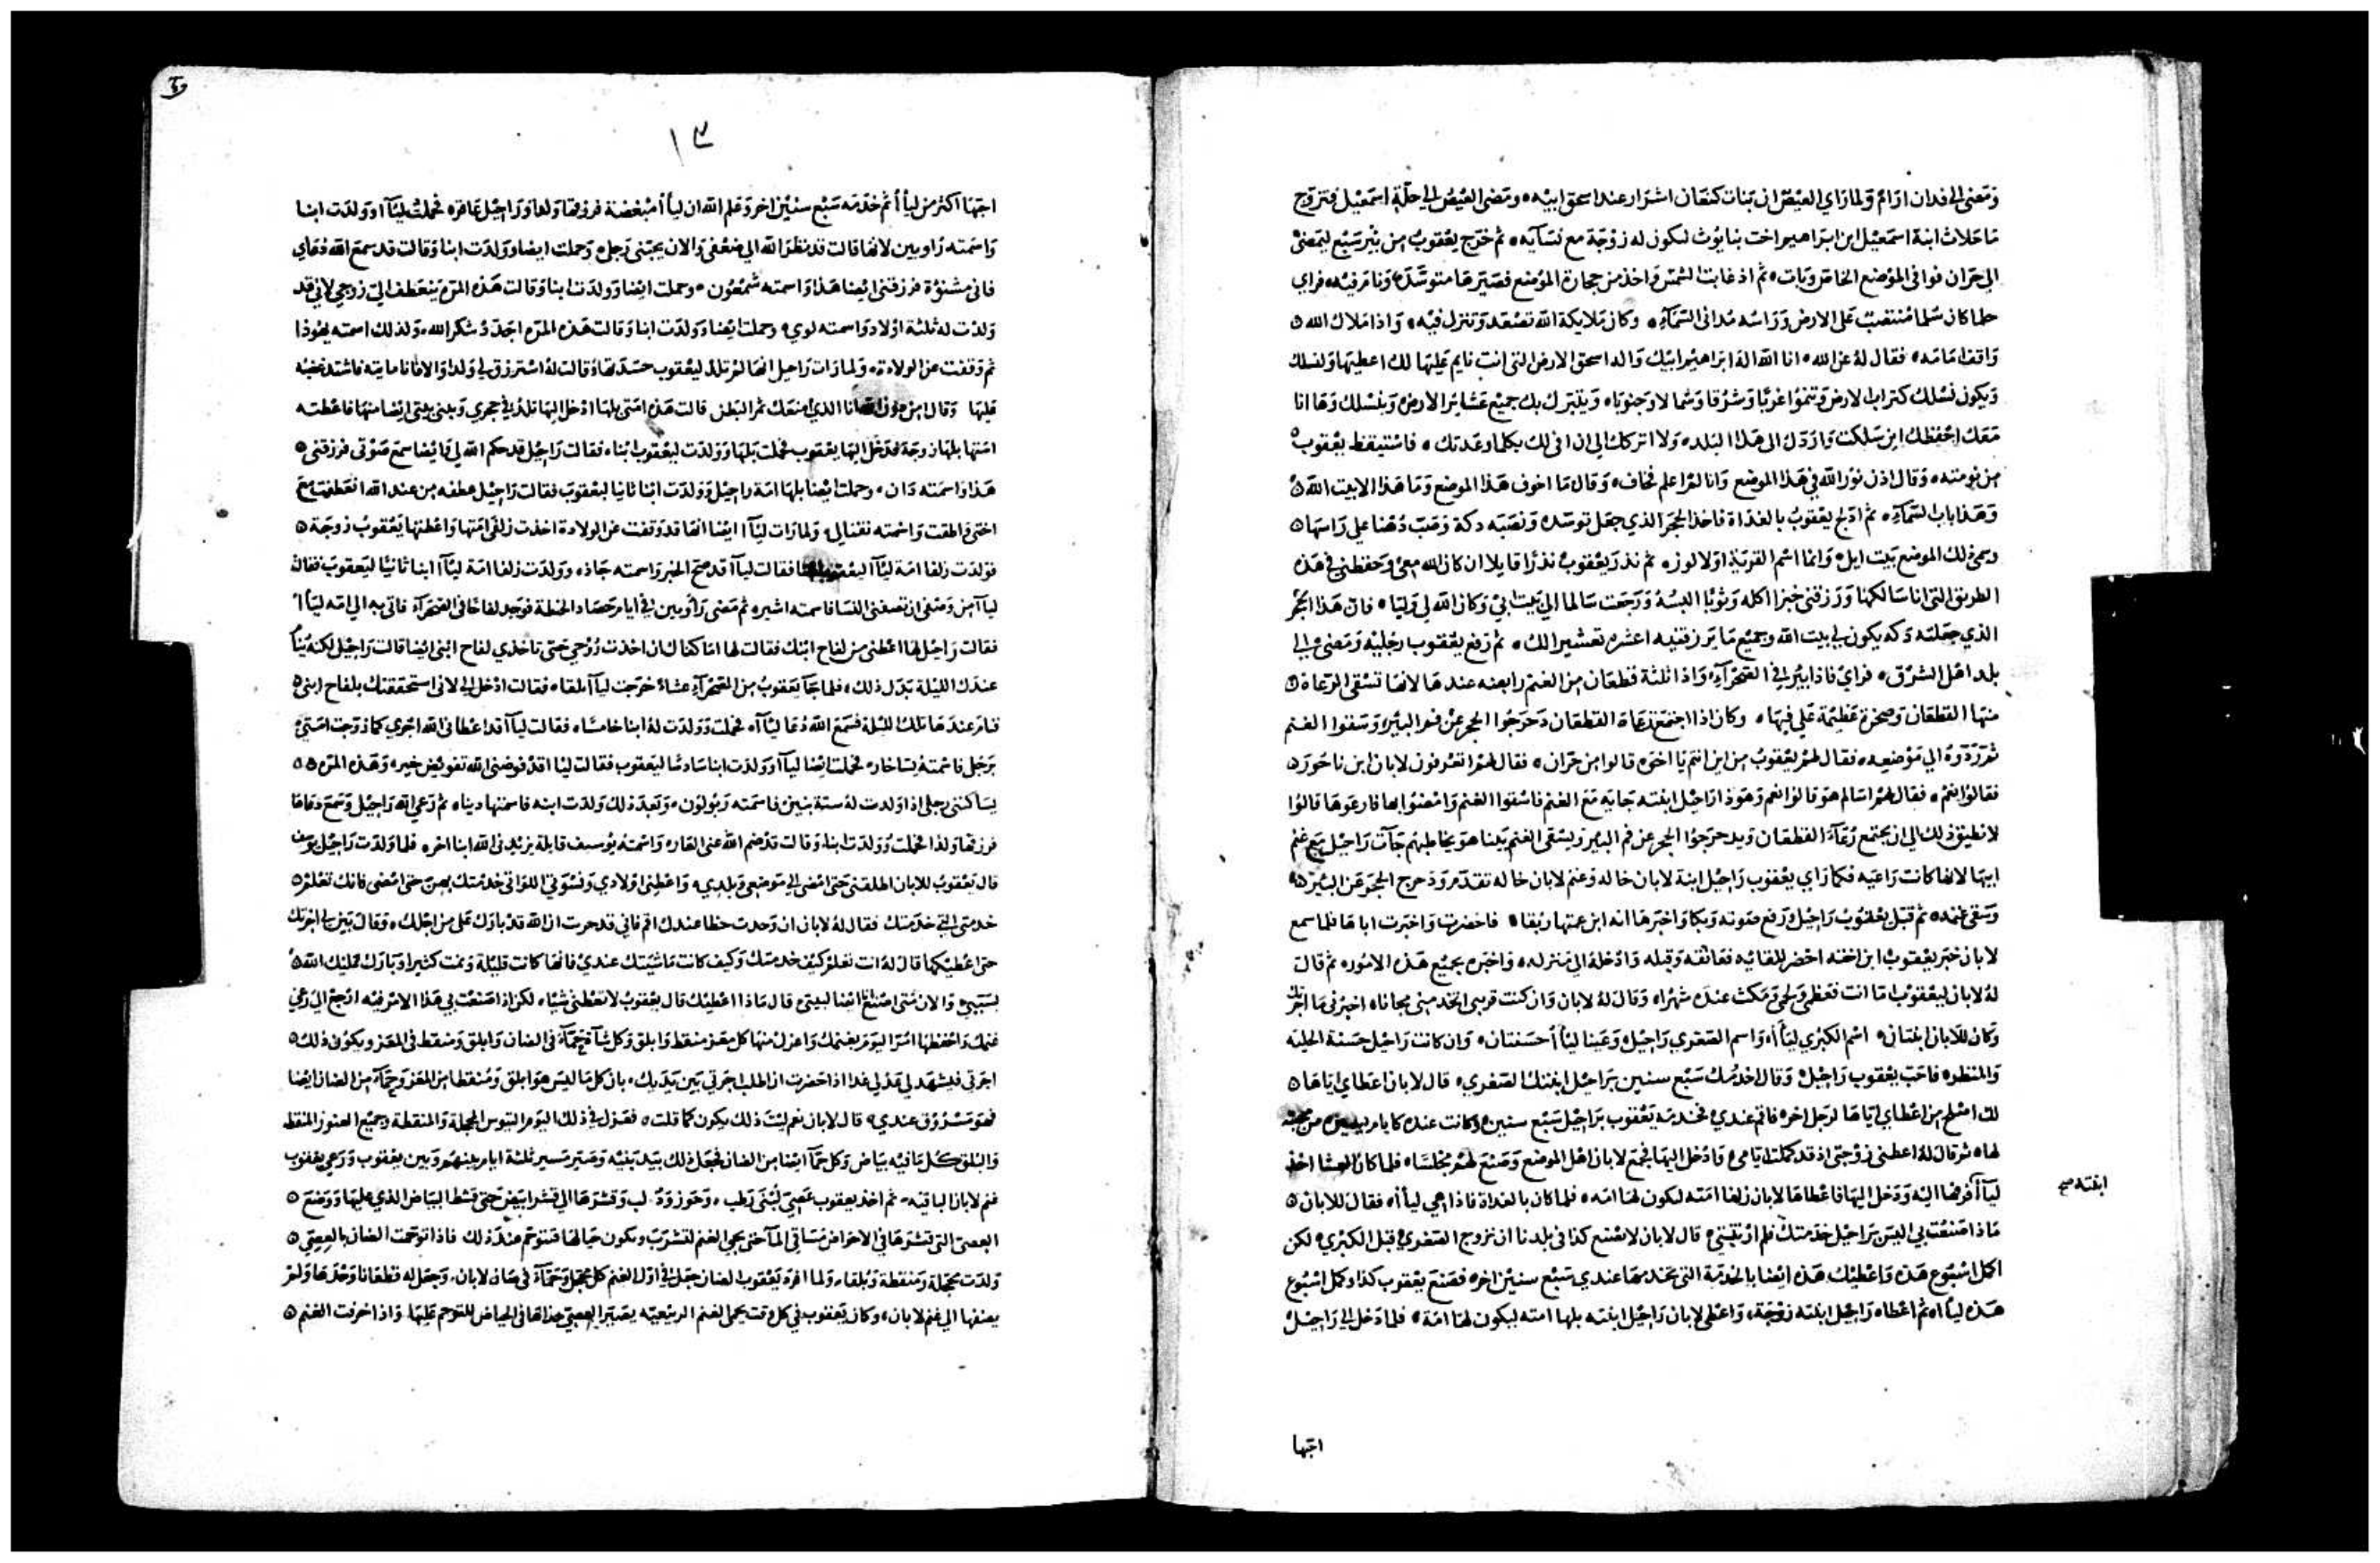 ومضى الى فدان ارام ولما راي العيص ان بنات كنعان اشرار عند اسحق ابيه ومضى العيص الى حلة اسمعيل فتزوج
ماحلاث ابنة اسمعيل ابن ابراهيم اخت بنايوث لتكون له زوجة مع نسايه ثم خرج يعقوب من بير سبع ليمضى
الى حران فوافى الموضع الخاص وبات ثم اذ غابت الشمس واخذ من حجارة الموضع فصيرها متوسده ونام فيه فراى
حلما كان سلما منتصب على الارض وراسه مدانى السماء وكان ملايكة الله تصعد وتنزل فيه واذا ملاك الله
واقف امامه فقال له عن الله انا الله اله ابراهيم ابيك واله اسحق الارض التى انت نايم عليها لك اعطيها ولنسلك
ويكون نسلك كتراب الارض وتنموا غربا وشرقا وشمالا وجنوبا ويتبرك بك جميع عشاير الارض وبنسلك وها انا
معك احفظك اين سلكت واردك الى هذا البلد ولا اتركك الى ان افى لك بكلما وعدتك فاستيقظ يعقوب
من نومته وقال اذن نور الله فى هذا الموضع وانا لم اعلم فخاف وقال ما اخوف هذا الموضع وما هذا الا بيت الله
وهذا باب السماء ثم ادلج يعقوب بالغداة فاخذ الحجر الذي جعل توسده ونصبه دكة وصب دهنا على راسها
وسمى ذلك الموضع بيت ايل وانما اسم القرية اولا لوز ثم نذر يعقوب نذرا قايلا ان كان الله معى وحفظنى فى هذه
الطريق التى انا سالكها ورزقنى خبزا اكله وثوبا البسه ورجعت سالما الى بيت ابي وكان الله لي وليا فان هذا الحجر
الذي جعلته دكه يكون لي بيت الله وجميع ما يرزقنيه اعشره تعشيرا لك ثم رفع يعقوب رجليه ومضى الى
بلد اهل الشرق فراى فاذا ببير في الصحراء واذا ثلثة قطعان من الغنم رابضه عندها لانها تسقى الرعاة
منها القطعان وصخرة عظيمة على فيها وكان اذا اجتمع رعاة القطعان دحرجوا الحجر عن فم البير وسقوا الغنم
ثم ردوه الى موضعه فقال لهم يعقوب من اين انتم يا اخوه قالوا من حران فقال لهم اتعرفون لابان ابن ناحور
فقالوا نعم فقال لهم اسالم هو قالوا نعم وهوذا راحيل ابنته جايه مع الغنم فاسقوا الغنم وامضوا بها فارعوها قالوا
لا نطيق ذلك الى ان يجتمع رعاة القطعان ويدحرجوا الحجر عن فم البير ويسقى الغنم بينا هو يخاطبهم جآت راحيل مع غنم
ابيها لانها كانت راعيه فكما راى يعقوب راحيل ابنة لابان خاله وغنم لابان خاله تقدم ودحرج الحجر عن البير
وسقى غنمه ثم قبل يعقوب راحيل ورفع صوته وبكا واخبرها انه ابن عمتها ربقا فاحضرت واخبرت اباها فلما سمع
لابان خبر يعقوب ابن اخته احضر للقايه فعانقه وقبله وادخله الى منزله واخبره بجميع هذه الامور ثم قال
له لابان ليعقوب اما انت فعظمي ولحمي ومكث عنده شهرا وقال له لابان وان كنت قريبى اتخدمنى مجانا اخبرنى ما اجرتك
وكان للابان ابنتان اسم الكبري ليأأ واسم الصغري راحيل وعينا ليأأ حسنتان وان كانت راحيل حسنة الحليه
والمنظر فاحب يعقوب راحيل وقال اخدمك سبع سنين براحيل ابنتك الصغري قال لابان اعطاي اياها
لك اصلح من اعطاي اياها لرجل اخر فاقم عندي فخدمه يعقوب براحيل سبع سنين وكانت عنده كايام يسيره من محبته
لها ثم قال له اعطنى زوجتى اذ قد كملت ايامى وادخل اليها فجمع لابان اهل الموضع وصنع لهم مجلسا فلما كان العشا اخذ
ليآأ فزفها اليه ودخل اليها فاعطاها لابان زلفا امته لتكون لها امه فلما كان بالغداة فاذا هي ليأأ فقال للابان
ابنته صح
ماذا صنعت بي اليس براحيل خدمتك فلم ازغتني قال لابان لا نصنع كذا فى بلدنا ان نزوج الصغري قبل الكبري لكن
اكمل اسبوع هذه واعطيك هذه ايضا بالخدمة التى تخدمها عندي سبع سنين اخر فصنع يعقوب كذا وكمل اسبوع
هذه ليأأ ثم اعطاه راحيل ابنته زوجة واعطى لابان راحيل ابنته بلها امته ليكون لها امة فلما دخل الى راحيل
احبها
١٣
احبها اكثر من ليأأ ثم خدمه سبع سنين اخر وعلم الله ان ليأأ مبغضة فرزقها ولدا وراحيل عاقره فحملت ليآأ وولدت ابنا
واسمته راوبين لانها قالت قد نظر الله الي ضعفى والان يحبنى رجلي وحملت ايضا وولدت ابنا وقالت قد سمع الله دعاي
فانى مشنؤة فرزقنى ايضا هذا واسمته شمعون وحملت ايضا وولدت ابنا وقالت هذه المره ينعطف الى زوجي لاني قد
ولدت له ثلثة اولاد واسمته لوي وحملت ايضا وولدت ابنا وقالت هذه المره اجدد شكر الله ولذلك اسمته يهوذا
ثم وقفت عن الولادة ولما رات راحيل انها لم تلد ليعقوب حسدتها وقالت له استرزق لي ولدا والا فانا مايته فاشتد غضبه
عليها وقال امن دون الله انا الذي منعك ثمر البطن قالت هذه امتى بلها ادخل اليها تلد في حجري ويبنى بيتى ايضا منها فاعطته
امتها بلها زوجة فدخل اليها يعقوب فحملت بلها وولدت ليعقوب ابنا فقالت راحيل قد حكم الله لي وايضا سمع صوتى فرزقنى
هذا واسمته دان وحملت ايضا بلها امة راحيل وولدت ابنا ثانيا ليعقوب فقالت راحيل عطفه من عند الله انعطفت مع
اختى واطقت واسمته نفتالى ولما رات ليآأ ايضا انها قد وقفت عن الولادة اخذت زلفى امتها واعطتها يعقوب زوجة
فولدت زلفا امة ليآأ ليعقوب ابنا فقالت ليآأ قد صح الخبر واسمته جاذ وولدت زلفا امة ليآأ ابنا ثانيا ليعقوب فقالت
ليآأ من وصفى ان تصفنى النسا فاسمته اشير ثم مضى راوبين في ايام حصاد الحنطة فوجد لفاحا فى الصحراء فاتى به الى امه ليأأ
فقالت راحيل لها اعطنى من لفاح ابنك فقالت لها اما كفاك ان اخذت زوجي حتى تاخذي لفاح ابنى ايضا قالت راحيل لكنه يبا
عندك الليلة بدل ذلك فلما جآ يعقوب من الصحراء عشاء خرجت ليآأ تلقاه فقالت ادخل الى لانى استحققتك بلفاح ابنى
فنام عندها تلك الليلة فسمع الله دعا ليآأ فحملت وولدت له ابنا خامسا فقالت ليآأ قد اعطانى الله اجري كما زوجت امتى
برجل فاسمته يساخار فحملت ايضا ليآأ وولدت ابنا سادسا ليعقوب فقالت ليأأ قد فوضنى الله تفويض خير وهذه المره
يساكننى رجلي اذ اولدت له ستة بنين فاسمته وبولون وبعد ذلك ولدت ابنه فاسمتها دينا ثم رعى الله راحيل وسمع دعاها
فرزقها ولدا فحملت وولدت ابنا وقالت قد ضم الله عنى العار واسمته يوسف قايلة يزيد فى الله ابنا اخر فلما ولدت راحيل يوسف
قال يعقوب للابان اطلقنى حتى امضى الى موضعى وبلدي واعطنى اولادي ونسوتي اللواتى خدمتك بهن حتى امضى فانك تعلم
خدمتى التى خدمتك فقال له لابان ان وجدت حظا عندك اقم فاني قد جربت ان الله قد بارك على من اجلك وقال بين لي اجرتك
حتى اعطيكها قال له انت تعلم كيف خدمتك وكيف كانت ماشيتك عندي فانها كانت قليلة ونمت كثيرا وبارك عليك الله
بسببي والان متى اصنع انا ايضا لبيتى قال ماذا اعطيك قال يعقوب لا تعطنى شيا لكن اذ اصنعت بي هذا الامر فيه ارجع الى رعي
غنمك واحفظها امر اليوم بغنمك واعزل منها كل معز منقط وابلق وكل شآة حمآء فى الضان وابلق ومنقط فى المعز ويكون ذلك
اجرتي فليشهد لي عدلي غدا اذا حضرت ان اطلب اجرتي بين يديك بان كل ما ليس هو ابلق ومنقطا من المعز وحمآء من الضان ايضا
فهو مسروق عندي قال لابان نعم ليت ذلك يكون كما قلت فعزل في ذلك اليوم التيوس المحجلة والمنقطة وجميع العنوز المنقط
والبلق كل ما فيه بياض وكل حمآ ايضا من الضان فجعل ذلك بيد بنيه وصير مسير ثلثة ايام بينهم وبين يعقوب ورعى يعقوب
غنم لابان الباقيه ثم اخذ يعقوب عصي لبنى رطب وحوز ودلب وقشرها الى قشر ابيض حتى قشط البياض الذي عليها ووضع
العصى التى قشرها في الاحواض مساقى المآ حتى يجى الغنم لتشرب وتكون حيالها فتتوحم عند ذلك فاذا توحمت الضان بالعصي
ولدت محجلة ومنقطة وبلقا ولما افرد يعقوب الضان جعل في اول الغنم كل محجل وحمآء فى ضان لابان وجعل له قطعانا وحدها ولم
يضفها الي غنم لابان وكان يعقوب في كل وقت يحمى الغنم الربيعيه يصير العصي حذاها فى الحياض للتوحم عليها واذا اخرفت الغنم